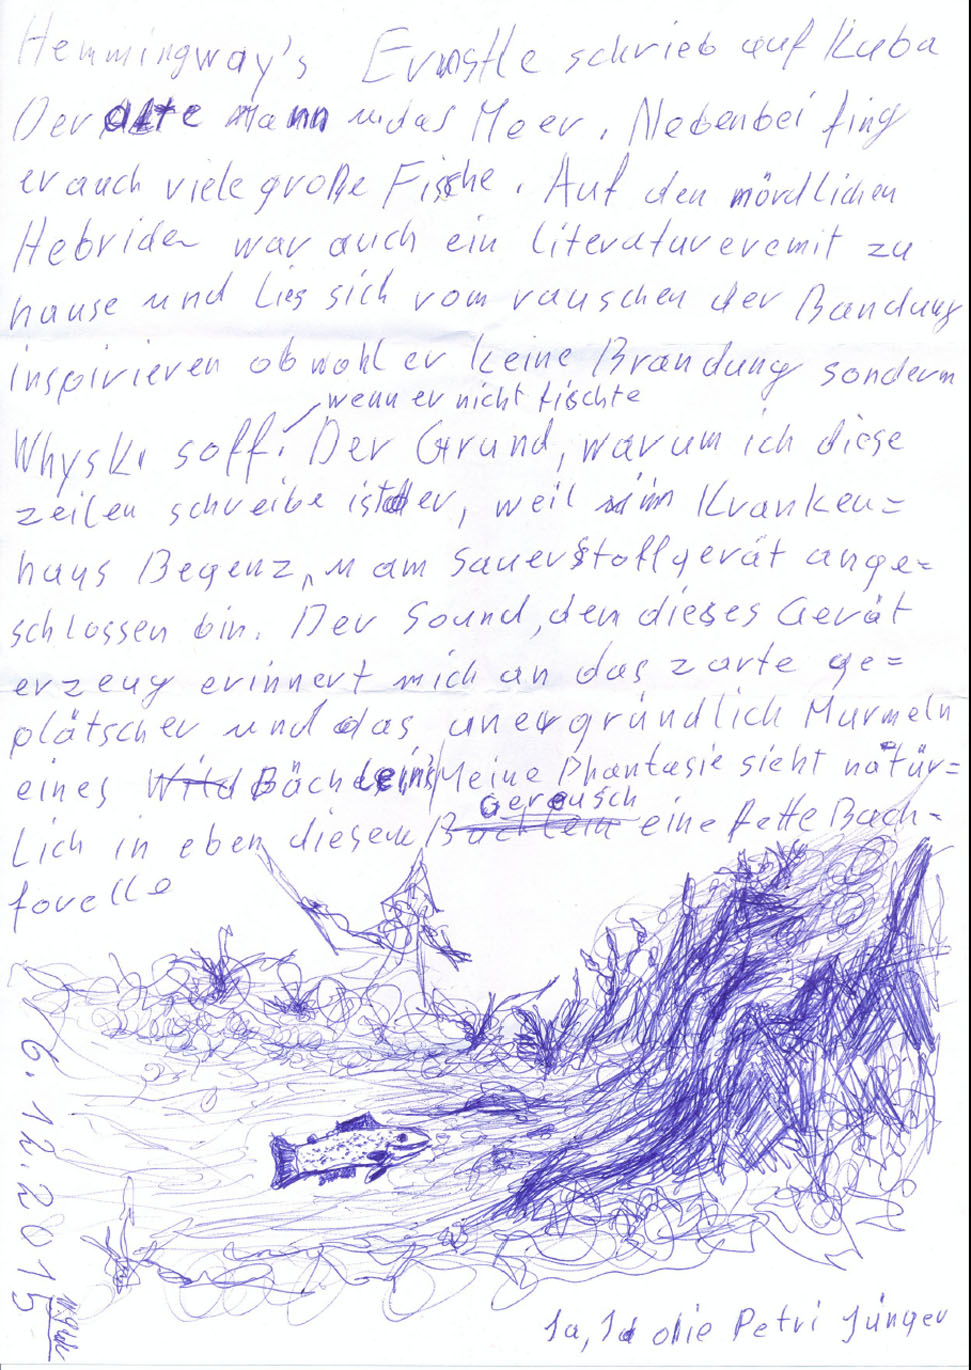 Hemmingway's Ernstle schrieb auf Kuba
Der alte Mann u das Meer. Nebenbei fing
er auch viele große Fische. Auf den mördlichen
Hebriden war auch ein literatureremit zu
hause und Lies sich vom rauschen der Bandung
inspirieren obwohl er keine Brandung sondern
wenn er nicht fischte
Whyski soff. Der Grund, warum ich diese
zeilen schreibe ist der, weil im Kranken=
haus Begenz, u am Sauerstoffgerät ange=
schlossen bin. Der Sound, den dieses Gerät
erzeug erinnert mich an das zarte ge=
plätscher und das unergründlich Murmeln
eines Wild Bächleins Meine Phantasie sieht natür=
Gereusch
Lich in eben diesem Bächlein eine fette Bach-
forelle
6.12.2015
Ja, Ja die Petri Jünger